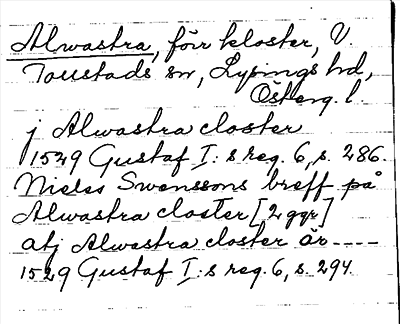 Alwastra, förr kloster, V.
Tollstads sn, Lysings hd,
Österg. l.
j Alwastra closter
1529 Gustaf I:s reg. 6, s. 286.
Nieles Swenssons breff på
Alwastra closter [2 ggr]
atj Alwastra closter är ----
1529 Gustaf I:s reg. 6, s. 294.